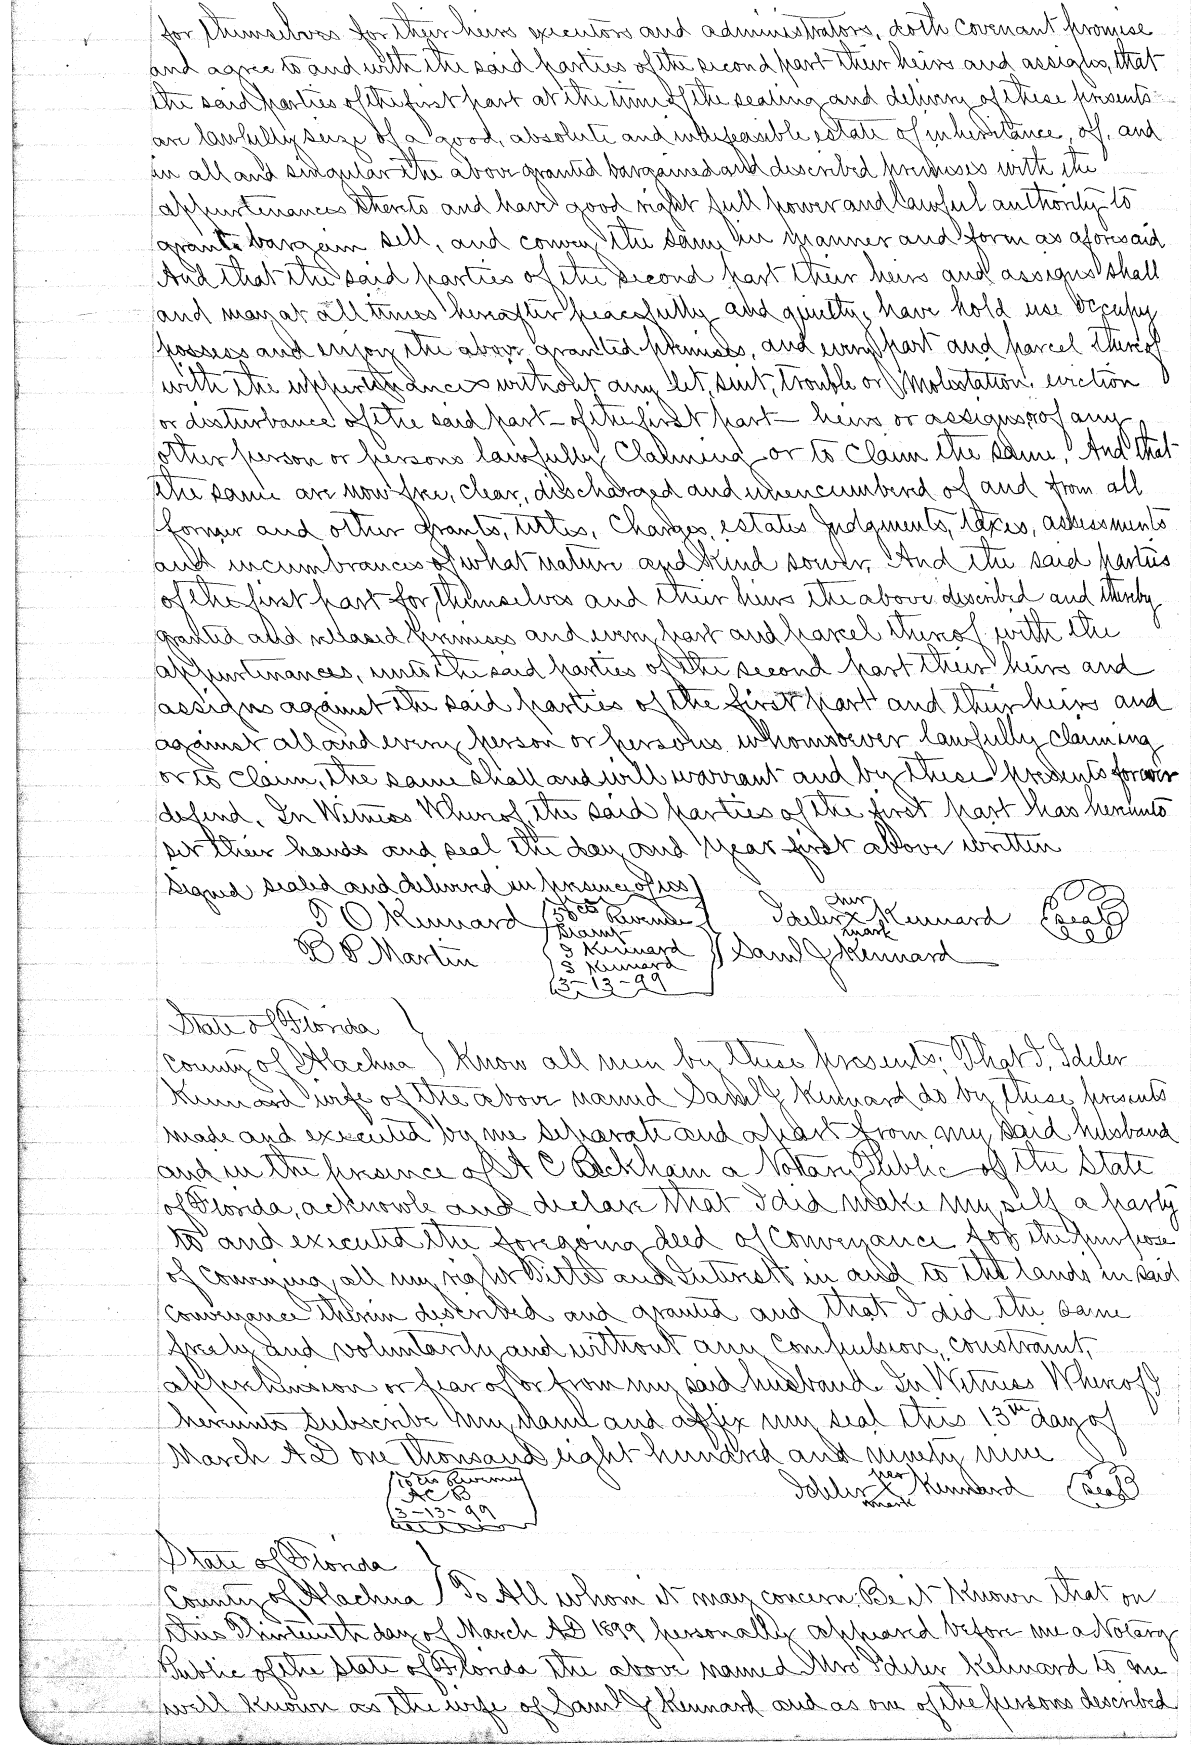 for themselves for their heirs executors and administrators, doth covenant promise
and agree to and with the said parties of the second part their heirs and assigns, that
the said parties of the first part at the time of the sealing and delivery of these presents
are lawfully seize of a good, absolute and indefeasible estate of inheritance, of, and
in all and singular the above granted bargained and described premises with the
appurtenances thereto and have good right full power and lawful authority to
grant bargain sell, and convey the same in manner and form as aforesaid
And that the said parties of the second part their heirs and assigns shall
and may at all times hereafter peacefully and quietly, have hold use occupy
possess and enjoy the above granted premises, and every part and parcel thereof
with the appertinances without any let, suit, trouble or Molestation, eviction
or disturbance of the said part — of the first part — heirs or assigns, or of any
other person or persons lawfully Claiming or to Claim the same. And that
the same are now free, clear, discharged and unencumbered of and from all
former and other grants, titles, Charges, estates Judgments, taxes, assessments
and incumbrances of what nature and Kind soever. And the said parties
of the first part for themselves and their heirs the above described and thereby
granted and released premises and every part and parcel thereof with the
appurtenances, unto the said parties of the second part their heirs and
assigns against the said parties of the first part and their heirs and
against all and every person or persons whomsoever lawfully claiming
or to Claim, the same shall and will warrant and by these presents forever
defend. In Witness Whereof, the said parties of the first part has hereunto
set their hands and seal the day and year first above written
Signed sealed and delivered in presence of us
T O Kennard 50 cts Revenue Ideler her x Kennard (Seal)
B P Martin Stamp mark Saml J Kennard
I Kennard
S Kennard
3-13-99
State of Florida
County of Alachua Know all men by these presents; That I, Ideler
Kennard wife of the above named Saml J Kennard do by these presents
made and executed by me separate and apart from my said husband
and in the presence of A C Beckham a Notary Public of the State
of Florida, acknowle and declare that I did make my self a party
to and executed the foregoing deed of Conveyance for the purpose
of Conveying, all my right Title and Interest in and to the lands in said
Conveyance therein described and granted and that I did the same
freely and voluntarily and without any Compulsion, constraint,
apprehension or fear of or from my said husband. In Witness Whereof I
hereunto Subscribe My name and affix my seal this 13th day of
March AD one thousand eight hundred and ninety nine
10 cts Revenue Ideler her x Kennard (Seal)
A C B mark
3-13-99
State of Florida
County of Alachua To All whom it may concern: Be it Known that on
this Thirteenth day of March AD 1899 personally appeared before me a Notary
Public of the State of Florida the above named Mrs Ideler Kennard to me
well known as the wife of Saml J Kennard and as one of the persons described